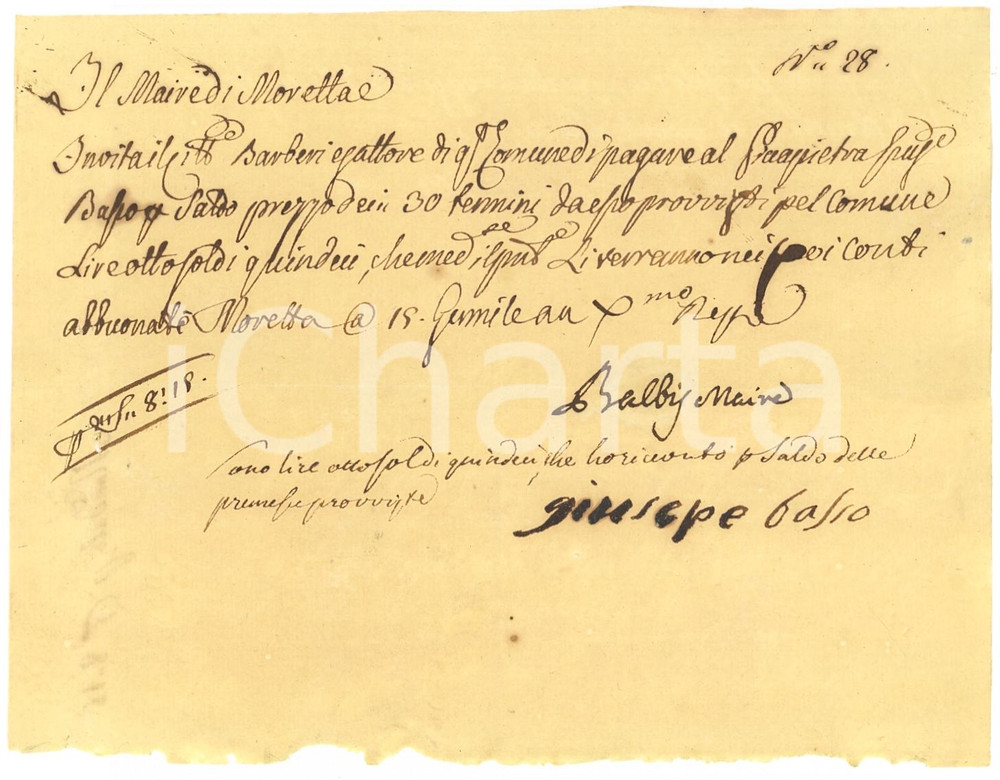 N.° 28.
Il Maire di Moretta
Invita il Citt.e Barberi esattore di q.ta Comune di pagare al
Basso p saldo prezzo de 30 termini da esso provvisti pel comune
Lire otto soldi quindeci, che med.e Li verranno nei suoi conti
abbuonate Moretta @ 15. Germile an X.mo Rep.e
8: 15.
Balbis Maire
sono lire otto soldi quindeci, che ho ricevuto p saldo delle
premesse provviste
giusepe basso
iCharta